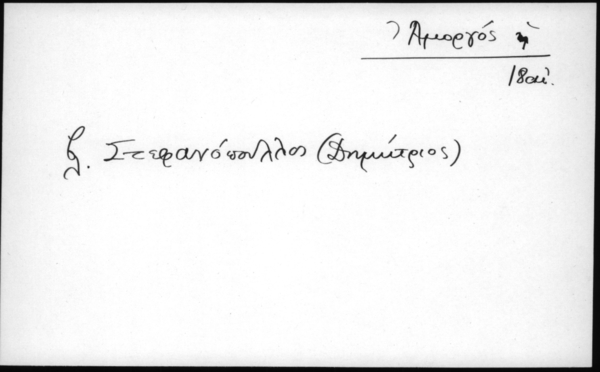 Ἀμοργός ἡ
18 αἰ.
βλ. Στεφανόπουλλος (Δημήτριος)